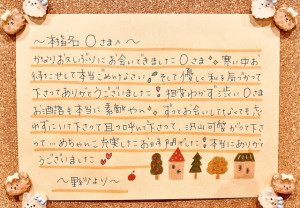 〜本指名 Oさまへ〜
かなりお久しぶりにお会いできました Oさま 寒い中お
待たせして本当ごめんなさい そして優しく私を気づかって
下さってありがとうございました！相変わらず渋い Oさま
お洒落も本当に素敵やん ずっとお会いしてなくても忘
れずにいて下さって耳つ呼んで下さって 沢山可愛がって下さ
って…めちゃんこ充実したお時間でした！本当にありがと
うございました
より〜